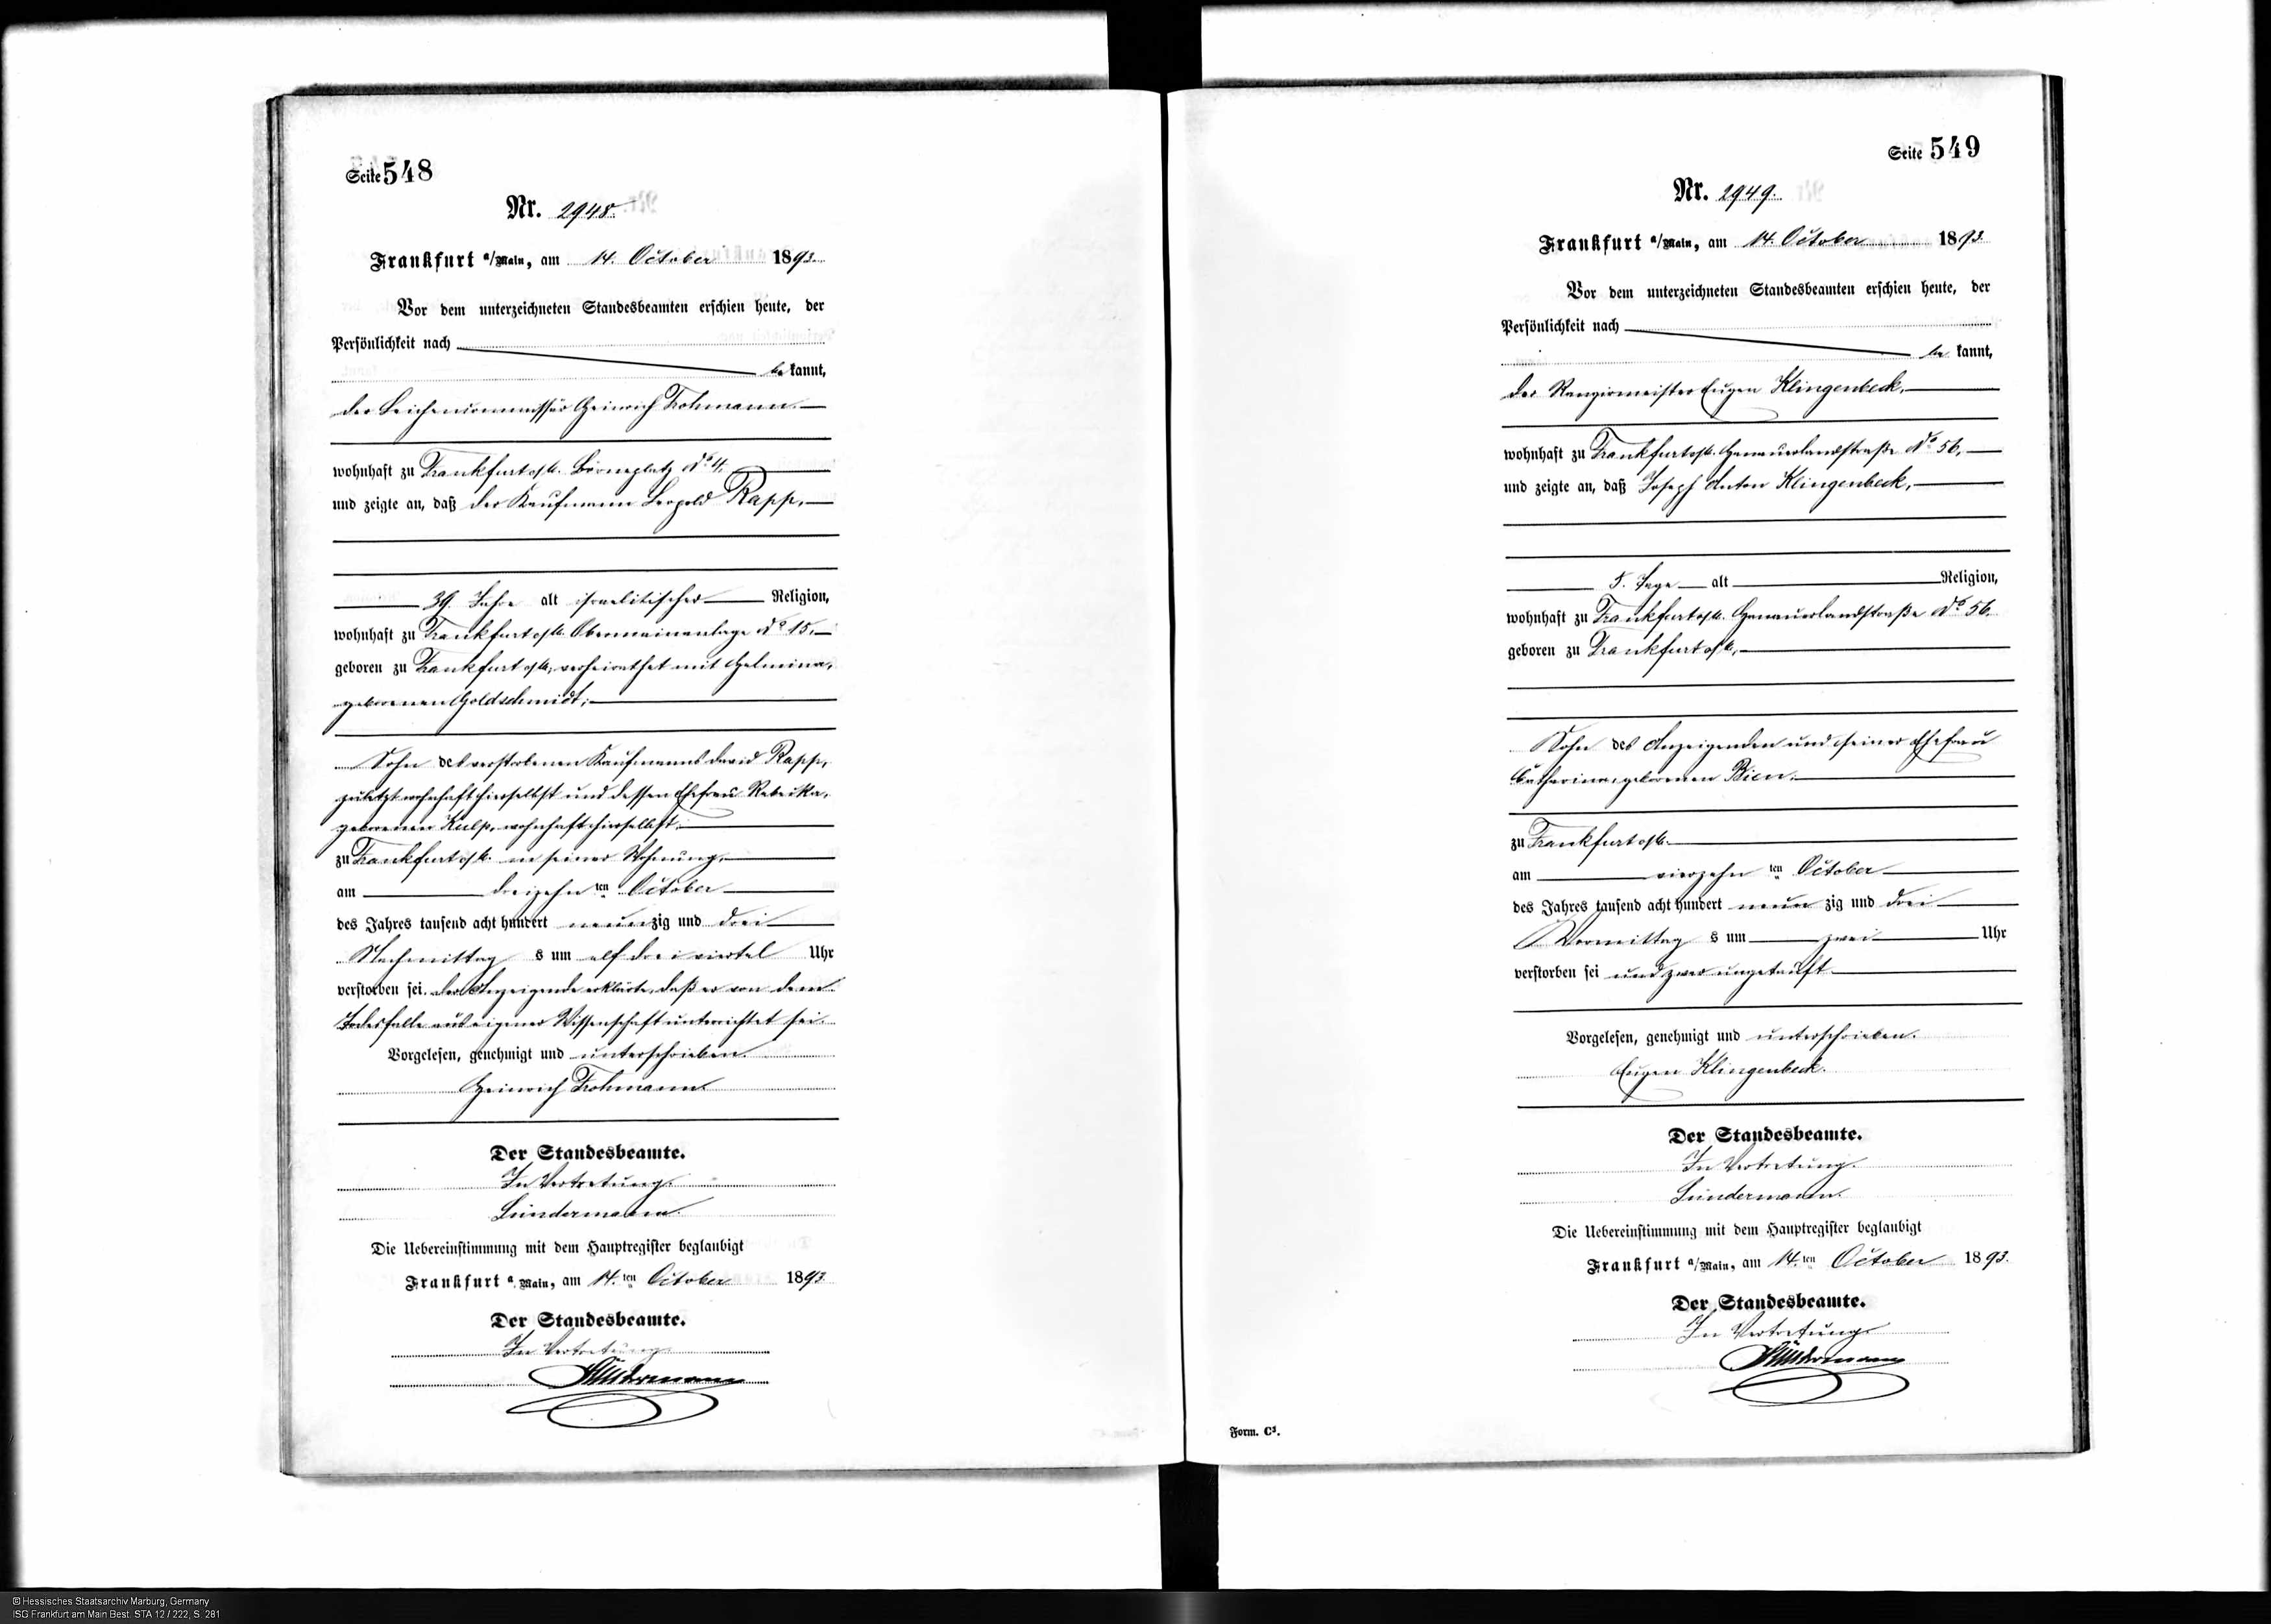 Seite 548
Nr. 2948.
Frankfurt a/Main, am 14. October 1893.
Vor dem unterzeichneten Standesbeamten erschien heute, der
Persönlichkeit nach
be kannt,
der Leichencommissär Heinrich Frohmann.
wohnhaft zu Frankfurt a/M. Börneplatz No. 4,
und zeigte an, daß der Kaufmann Leopold Rapp,
39 Jahre alt israelitischer Religion,
wohnhaft zu Frankfurt a/M. Obermainanlage No. 15,
geboren zu Frankfurt a/M., verheirathet mit Helmina,
geborenen Goldschmidt;
Sohn des verstorbenen Kaufmanns David Rapp,
zuletzt wohnhaft hierselbst und dessen Ehefrau Rebecka,
geborenen Kulp, wohnhaft hierselbst,
zu Frankfurt a/M. in seiner Wohnung,
am dreizehn ten October
des Jahres tausend acht hundert neunzig und drei
Nachmittag s um elf dreiviertel Uhr
verstorben sei. Der Anzeigende erklärte, daß er von dem
Todesfalle aus eigener Wissenschaft unterrichtet sei.
Vorgelesen, genehmigt und unterschrieben.
Heinrich Frohmann.
Der Standesbeamte.
In Vertretung.
Lündermann.
Die Uebereinstimmung mit dem Hauptregister beglaubigt
Frankfurt a. Main, am 14. ten October 1893
Der Standesbeamte.
In Vertretung.
Lündermann
Seite 549
Nr. 2949.
Frankfurt a/Main, am 14. October 1893
Vor dem unterzeichneten Standesbeamten erschien heute, der
Persönlichkeit nach
be kannt,
der Rangirmeister Eugen Klingenbeck,
wohnhaft zu Frankfurt a/M. Hanauerlandstraße No. 56,
und zeigte an, daß Joseph Anton Klingenbeck,
5. Tage alt Religion,
wohnhaft zu Frankfurt a/M. Hanauerlandstraße No. 56.
geboren zu Frankfurt a/M.,
Sohn des Anzeigenden und seiner Ehefrau
Catharina, geborenen Bien.
zu Frankfurt a/M.
am vierzehn ten October
des Jahres tausend acht hundert neun zig und drei
Vormittag s um zwei Uhr
verstorben sei und zwar ungetauft
Vorgelesen, genehmigt und unterschrieben.
Eugen Klingenbeck.
Der Standesbeamte.
In Vertretung.
Lündermann.
Die Uebereinstimmung mit dem Hauptregister beglaubigt
Frankfurt a/Main, am 14. ten October 1893.
Der Standesbeamte.
In Vertretung.
Lündermann
Form. C³.
© Hessisches Staatsarchiv Marburg, Germany
ISG Frankfurt am Main Best. STA 12 / 222, S. 281